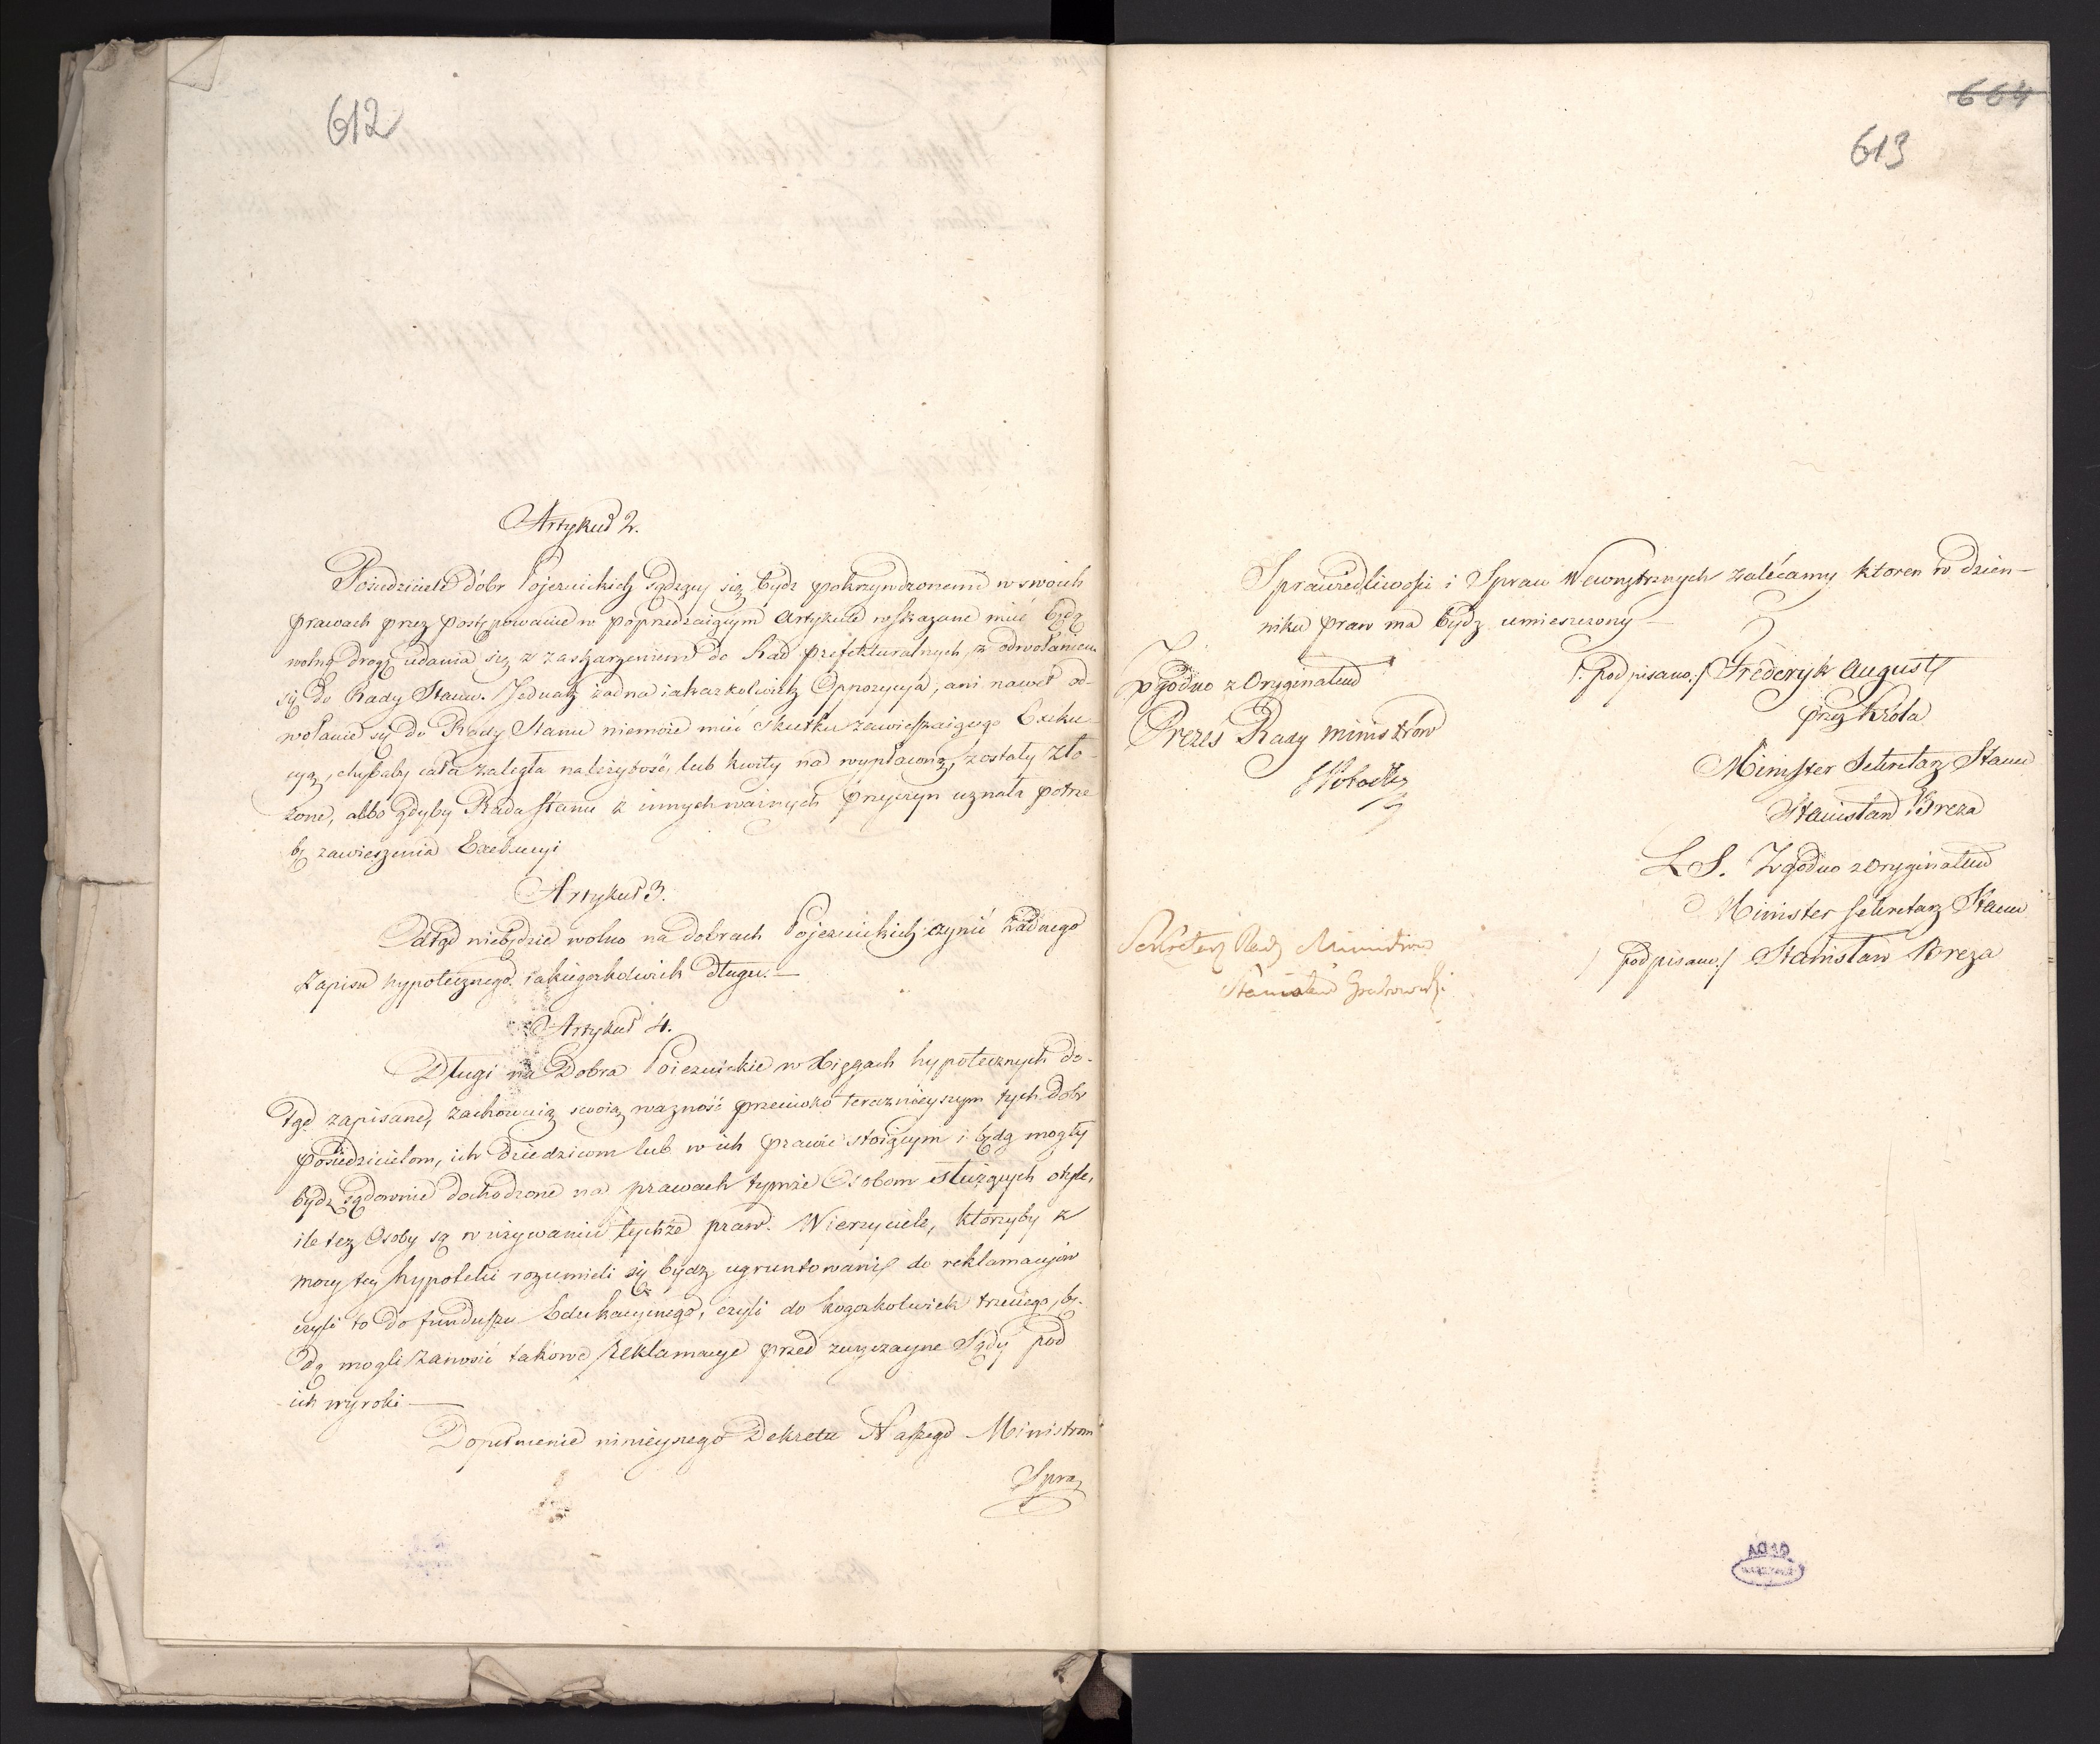 612
Artykuł 2.
Posiedziciele dóbr Pojezuickich sądzący się bydz pokrzywdzonemi w swoich
prawach przez postępowanie w poprzedzaiącym Artykule wskazane mieć będą
wolną drogę udania się z zaskarżeniem do Rad prefekturalnych, z odwołaniem
się do Rady Stanu. Jednak żadna iakażkolwiek Oppozycya, ani nawet od-
wołanie się do Rady Stanu niemoże mieć skutku zawieszaiącego Exeku-
cyą, chybaby cała zaległa należytość, lub kwity na wypłaconą, zostały zło-
żone, albo gdyby Rada Stanu z innych ważnych przyczyn uznała potrze
bę zawieszenia Exekucyi
Artykuł 3.
Odtąd niebędzie wolno na dobrach Pojezuickich czynić żadnego
zapisu hypotecznego iakiegożkolwiek długu. —
Artykuł 4.
Długi na Dobra Poiezuickie w Xięgach hypotecznych do-
tąd zapisane, zachowuią swoią ważność przeciwko teraznieyszym tych dobr
posiedzicielom, ich dziedzicom lub w ich prawie stoiącym i będą mogły
bydz sądownie dochodzone na prawach tymże Osobom służących otyle,
ile też Osoby są w używaniu tychże praw. Wierzyciele, którzyby z
mocy tey hypoteki rozumieli się bydz ugruntowani do reklamacyów
czyli to do funduszu Edukacyinego, czyli do kogożkolwiek trzeciego, bę-
dą mogli zanosić takowe reklamacye przed zwyczayne Sądy pod
ich wyroki —
Dopełnienie ninieyszego Dekretu Naszego Ministrom
Spra
664
613
Sprawiedliwości i Spraw Wewnętrznych zalécamy ktoren w dzien-
niku praw ma bydz umieszczony —
/: podpisano :/ Frederyk August
przez Króla
Minister Sekretarz Stanu
Stanisław Breza
L S. Zgodno z Oryginałem
Minister Sekretarz Stanu
/ podpisano :/ Stanisław Breza
Zgodno z Oryginałem
Prezes Rady Ministrów
Sekretarz Rady Ministrów
Stanisław Grabowski
AGAD